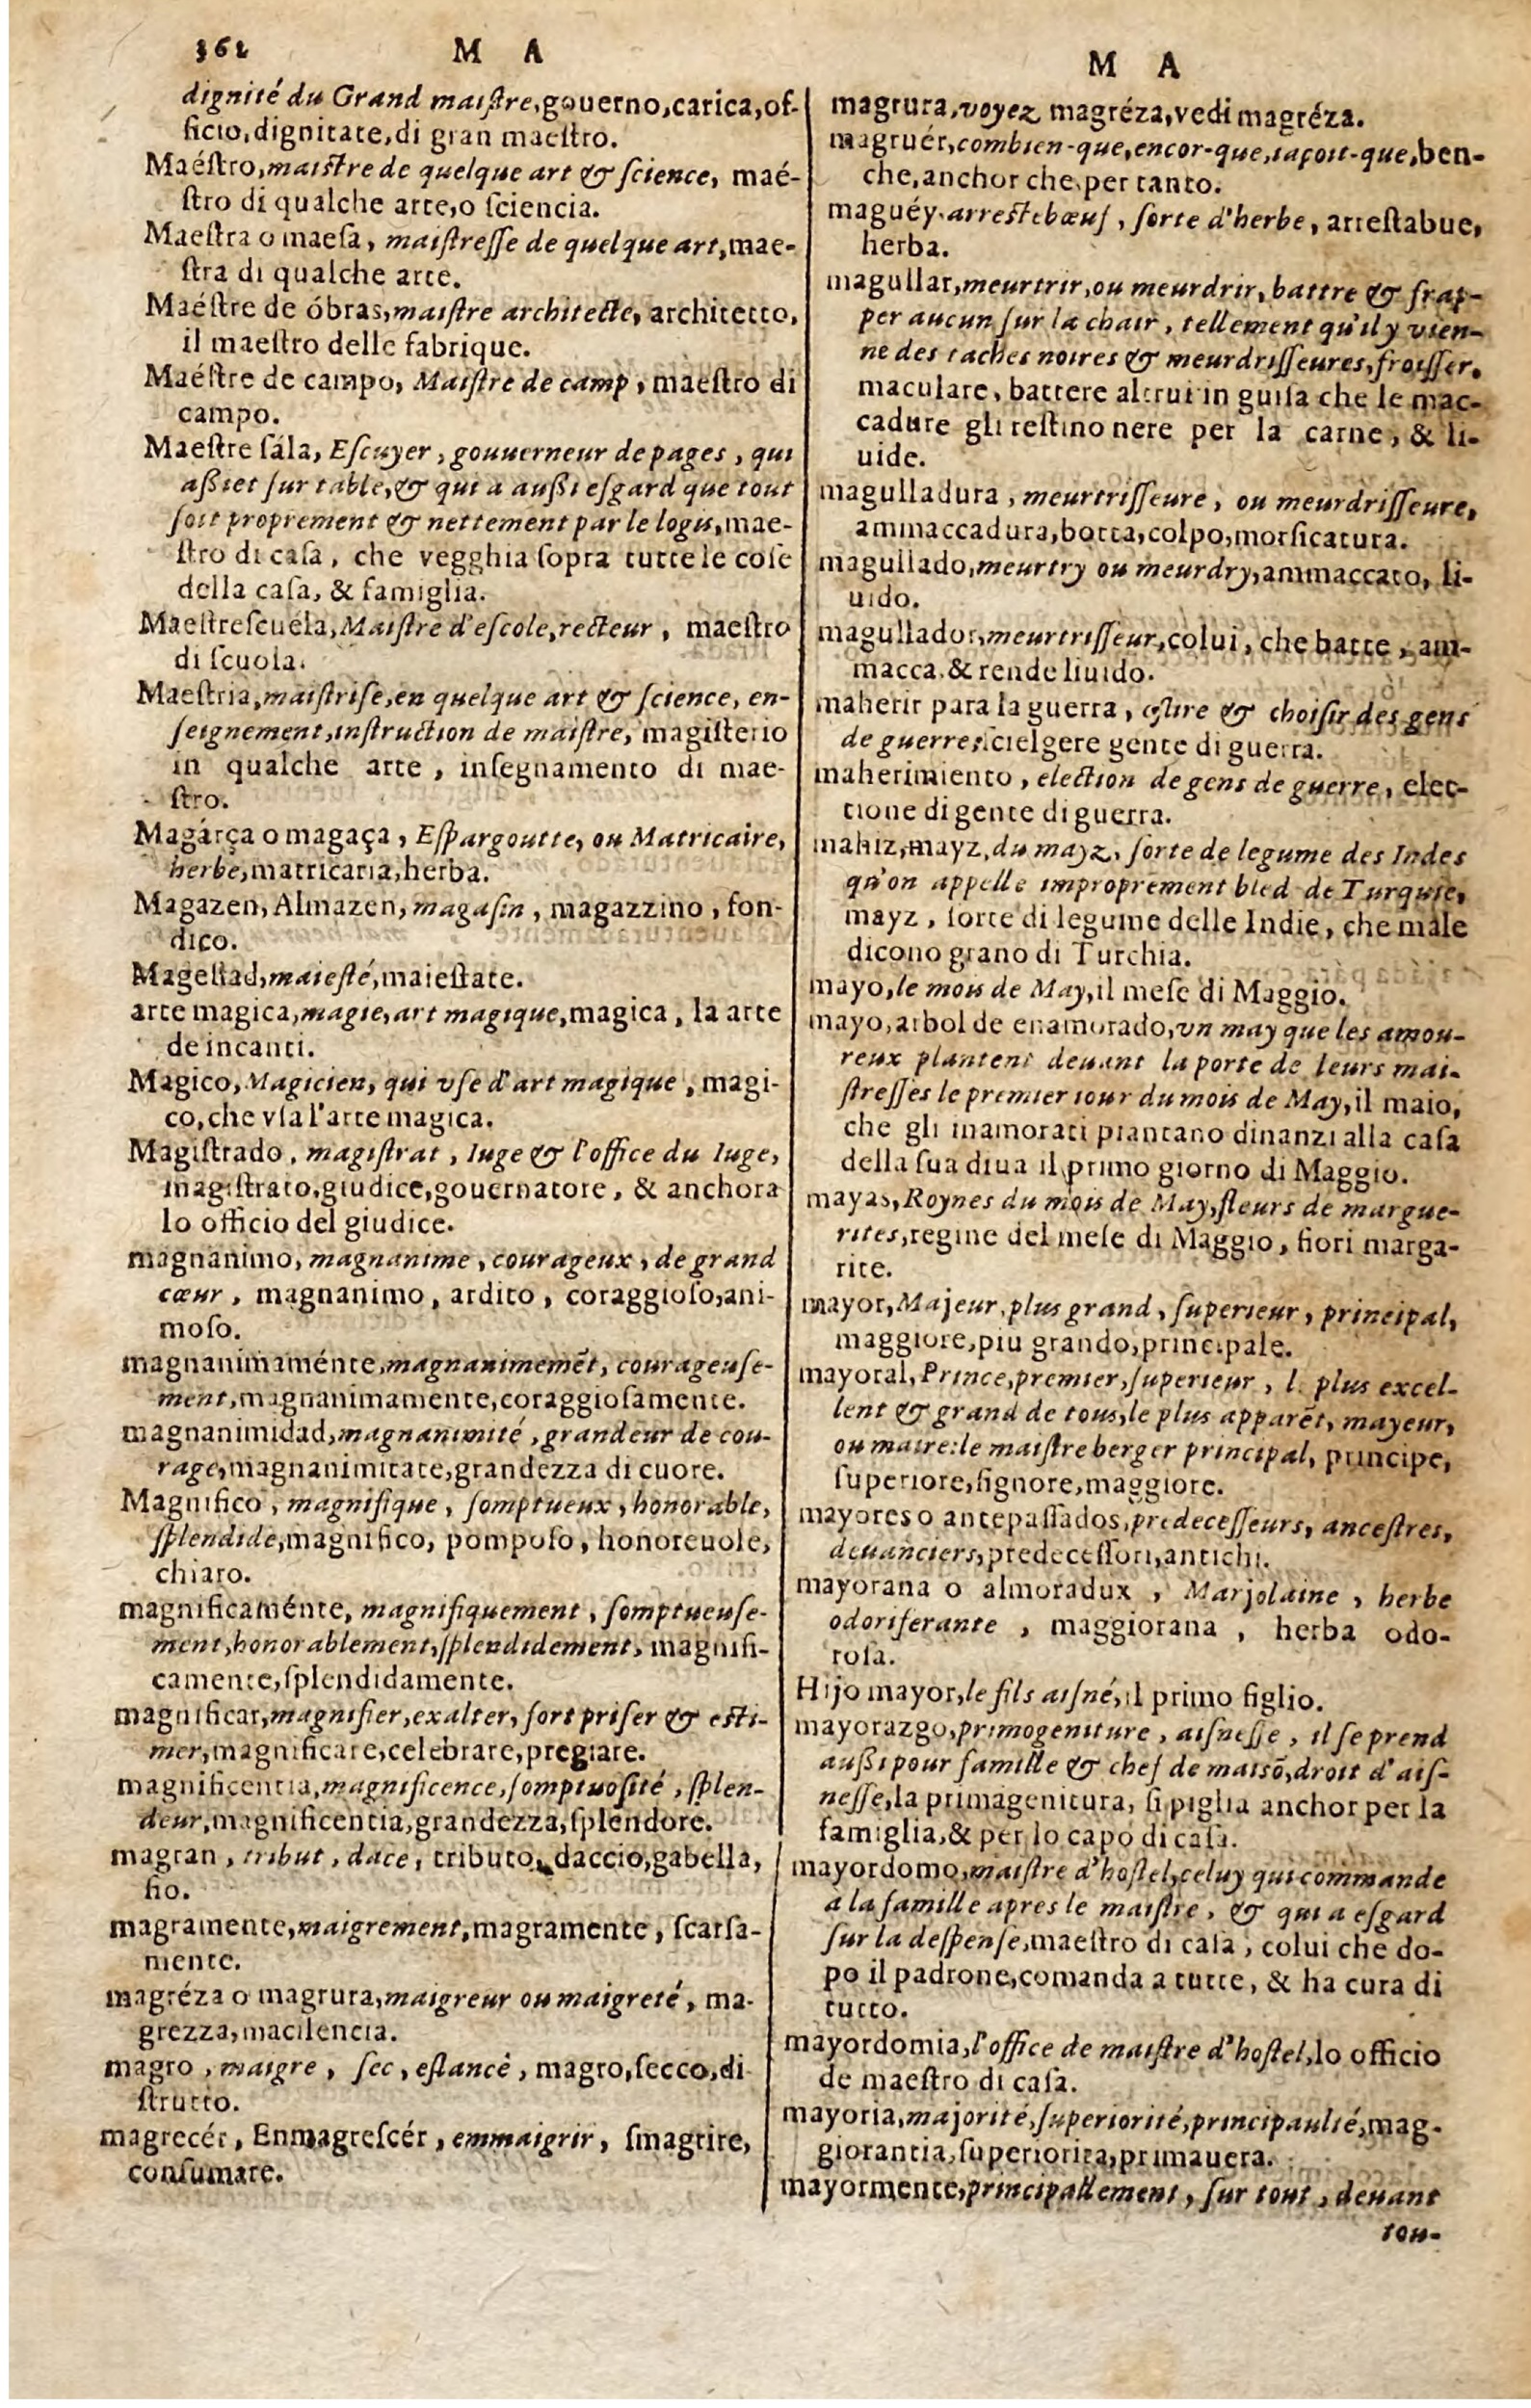 362 M A
dignité du Grand maiſtre,gouerno,carica,of-
ficio,dignitate,di gran maeſtro.
Maéſtro,maiſtre de quelque art & ſcience, maé-
ſtro di qualche arte,o ſciencia.
Maeſtra o maeſa, maiſtreſſe de quelque art,mae-
ſtra di qualche arte.
Maéſtre de óbras,maiſtre architecte, architetto,
il maeſtro delle fabrique.
Maéſtre de campo, Maiſtre de camp, maeſtro di
campo.
Maeſtre ſála, Eſcuyer, gouuerneur de pages, qui
aßiet ſur table,& qui a außi eſgard que tout
ſoit proprement & nettement par le logis,mae-
ſtro di caſa, che vegghia ſopra tutte le coſe
della caſa, & famiglia.
Maeſtreſcuéla,Maiſtre d'eſcole,recteur, maeſtro
di ſcuola.
Maeſtria,maiſtriſe,en quelque art & ſcience, en-
ſeignement,inſtruction de maiſtre, magiſterio
in qualche arte, inſegnamento di mae-
ſtro.
Magárça o magaça, Eſpargoutte, ou Matricaire,
herbe,matricaria,herba.
Magazen, Almazen, magaſin, magazzino, fon-
dico.
Mageſtad,maieſté,maieſtate.
arte magica,magie,art magique,magica, la arte
de incanti.
Magico, Magicien, qui vſe d'art magique, magi-
co,che vſa l'arte magica.
Magiſtrado, magiſtrat, Iuge & l'office du Iuge,
magiſtrato,giudice,gouernatore, & anchora
lo officio del giudice.
magnanimo, magnanime, courageux, de grand
cœur, magnanimo, ardito, coraggioſo,ani-
moſo.
magnanimaménte,magnanimemēt, courageuſe-
ment,magnanimamente,coraggioſamente.
magnanimidad,magnanimité,grandeur de cou-
rage,magnanimitate,grandezza di cuore.
Magnifico, magnifique, ſomptueux, honorable,
ſplendide,magnifico, pompoſo, honoreuole,
chiaro.
magnificaménte, magnifiquement, ſomptueuſe-
ment,honorablement,ſplendidement, magnifi-
camente,ſplendidamente.
magnificar,magnifier,exalter, fort priſer & eſti-
mer,magnificare,celebrare,pregiare.
magnificentia,magnificence,ſomptuoſité, ſplen-
deur,magnificentia,grandezza,ſplendore.
magran, tribut, dace, tributo, daccio,gabella,
fio.
magramente,maigrement,magramente, ſcarſa-
mente.
magréza o magrura,maigreur ou maigreté, ma-
grezza,macilencia.
magro, maigre, ſec, eſlancé, magro,ſecco,di
ſtrutto.
magrecér, Enmagreſcér, emmaigrir, ſmagrire,
conſumare.
M A
magrura,voyez magréza,vedi magréza.
magruér,combien-que,encor-que,iaçoit-que,ben-
che,anchor che,per tanto.
maguéy,arreſtebœuf, ſorte d'herbe, arreſtabue,
herba.
magullar,meurtrir,ou meurdrir, battre & frap-
per aucun ſur la chair, tellement qu'il y vien-
ne des taches noires & meurdriſſeures,froiſſer,
maculare, battere altrui in guiſa che le mac-
cadure gli reſtino nere per la carne, & li-
uide.
magulladura, meurtriſſeure, ou meurdriſſeure,
ammaccadura,botta,colpo,morſicatura.
magullado,meurtry ou meurdry,ammaccato, li-
uido.
magullador,meurtriſſeur,colui, che batte, am-
macca,& rende liuido.
maherir para la guerra, eſlire & choiſir des gens
de guerre,ſcielgere gente di guerra.
maherimiento, election de gens de guerre, elet-
tione di gente di guerra.
mahiz,mayz,du mayz, ſorte de legume des Indes
qu'on appelle improprement bled de Turquie,
mayz, ſorte di legume delle Indie, che male
dicono grano di Turchia.
mayo,le mois de May,il meſe di Maggio.
mayo,arbol de enamorado,vn may que les amou-
reux plantent deuant la porte de leurs mai-
ſtreſſes le premier iour du mois de May,il maio,
che gli inamorati piantano dinanzi alla caſa
della ſua diua il primo giorno di Maggio.
mayas, Roynes du mois de May,fleurs de margue-
rites,regine del meſe di Maggio, fiori marga-
rite.
mayor,Majeur,plus grand, ſuperieur, principal,
maggiore,piu grando,principale.
mayoral,Prince,premier,ſuperieur, l plus excel-
lent & grand de tous,le plus apparēt, mayeur,
ou maire:le maiſtre berger principal, principe,
ſuperiore,ſignore,maggiore.
mayores o antepaſſados,predeceſſeurs, anceſtres,
deuanciers,predeceſſori,antichi.
mayorana o almoradux, Marjolaine, herbe
odoriferante, maggiorana, herba odo-
roſa.
Hijo mayor,le fils aiſné,il primo figlio.
mayorazgo,primogeniture, aiſneſſe, il ſe prend
außi pour famille & chef de maisō,droit d'aiſ-
neſſe,la primagenitura, ſi piglia anchor per la
famiglia,& per lo capo di caſa.
mayordomo,maiſtre d'hoſtel,celuy qui commande
a la famille apres le maiſtre, & qui a eſgard
ſur la deſpenſe,maeſtro di caſa, colui che do-
po il padrone,comanda a tutte, & ha cura di
tutto.
mayordomia,l'office de maiſtre d'hoſtel,lo officio
de maeſtro di caſa.
mayoria,majorité,ſuperiorité,principaulté,mag-
giorantia,ſuperiorita,primauera.
mayormente,principallement, ſur tout, deuant
tou-